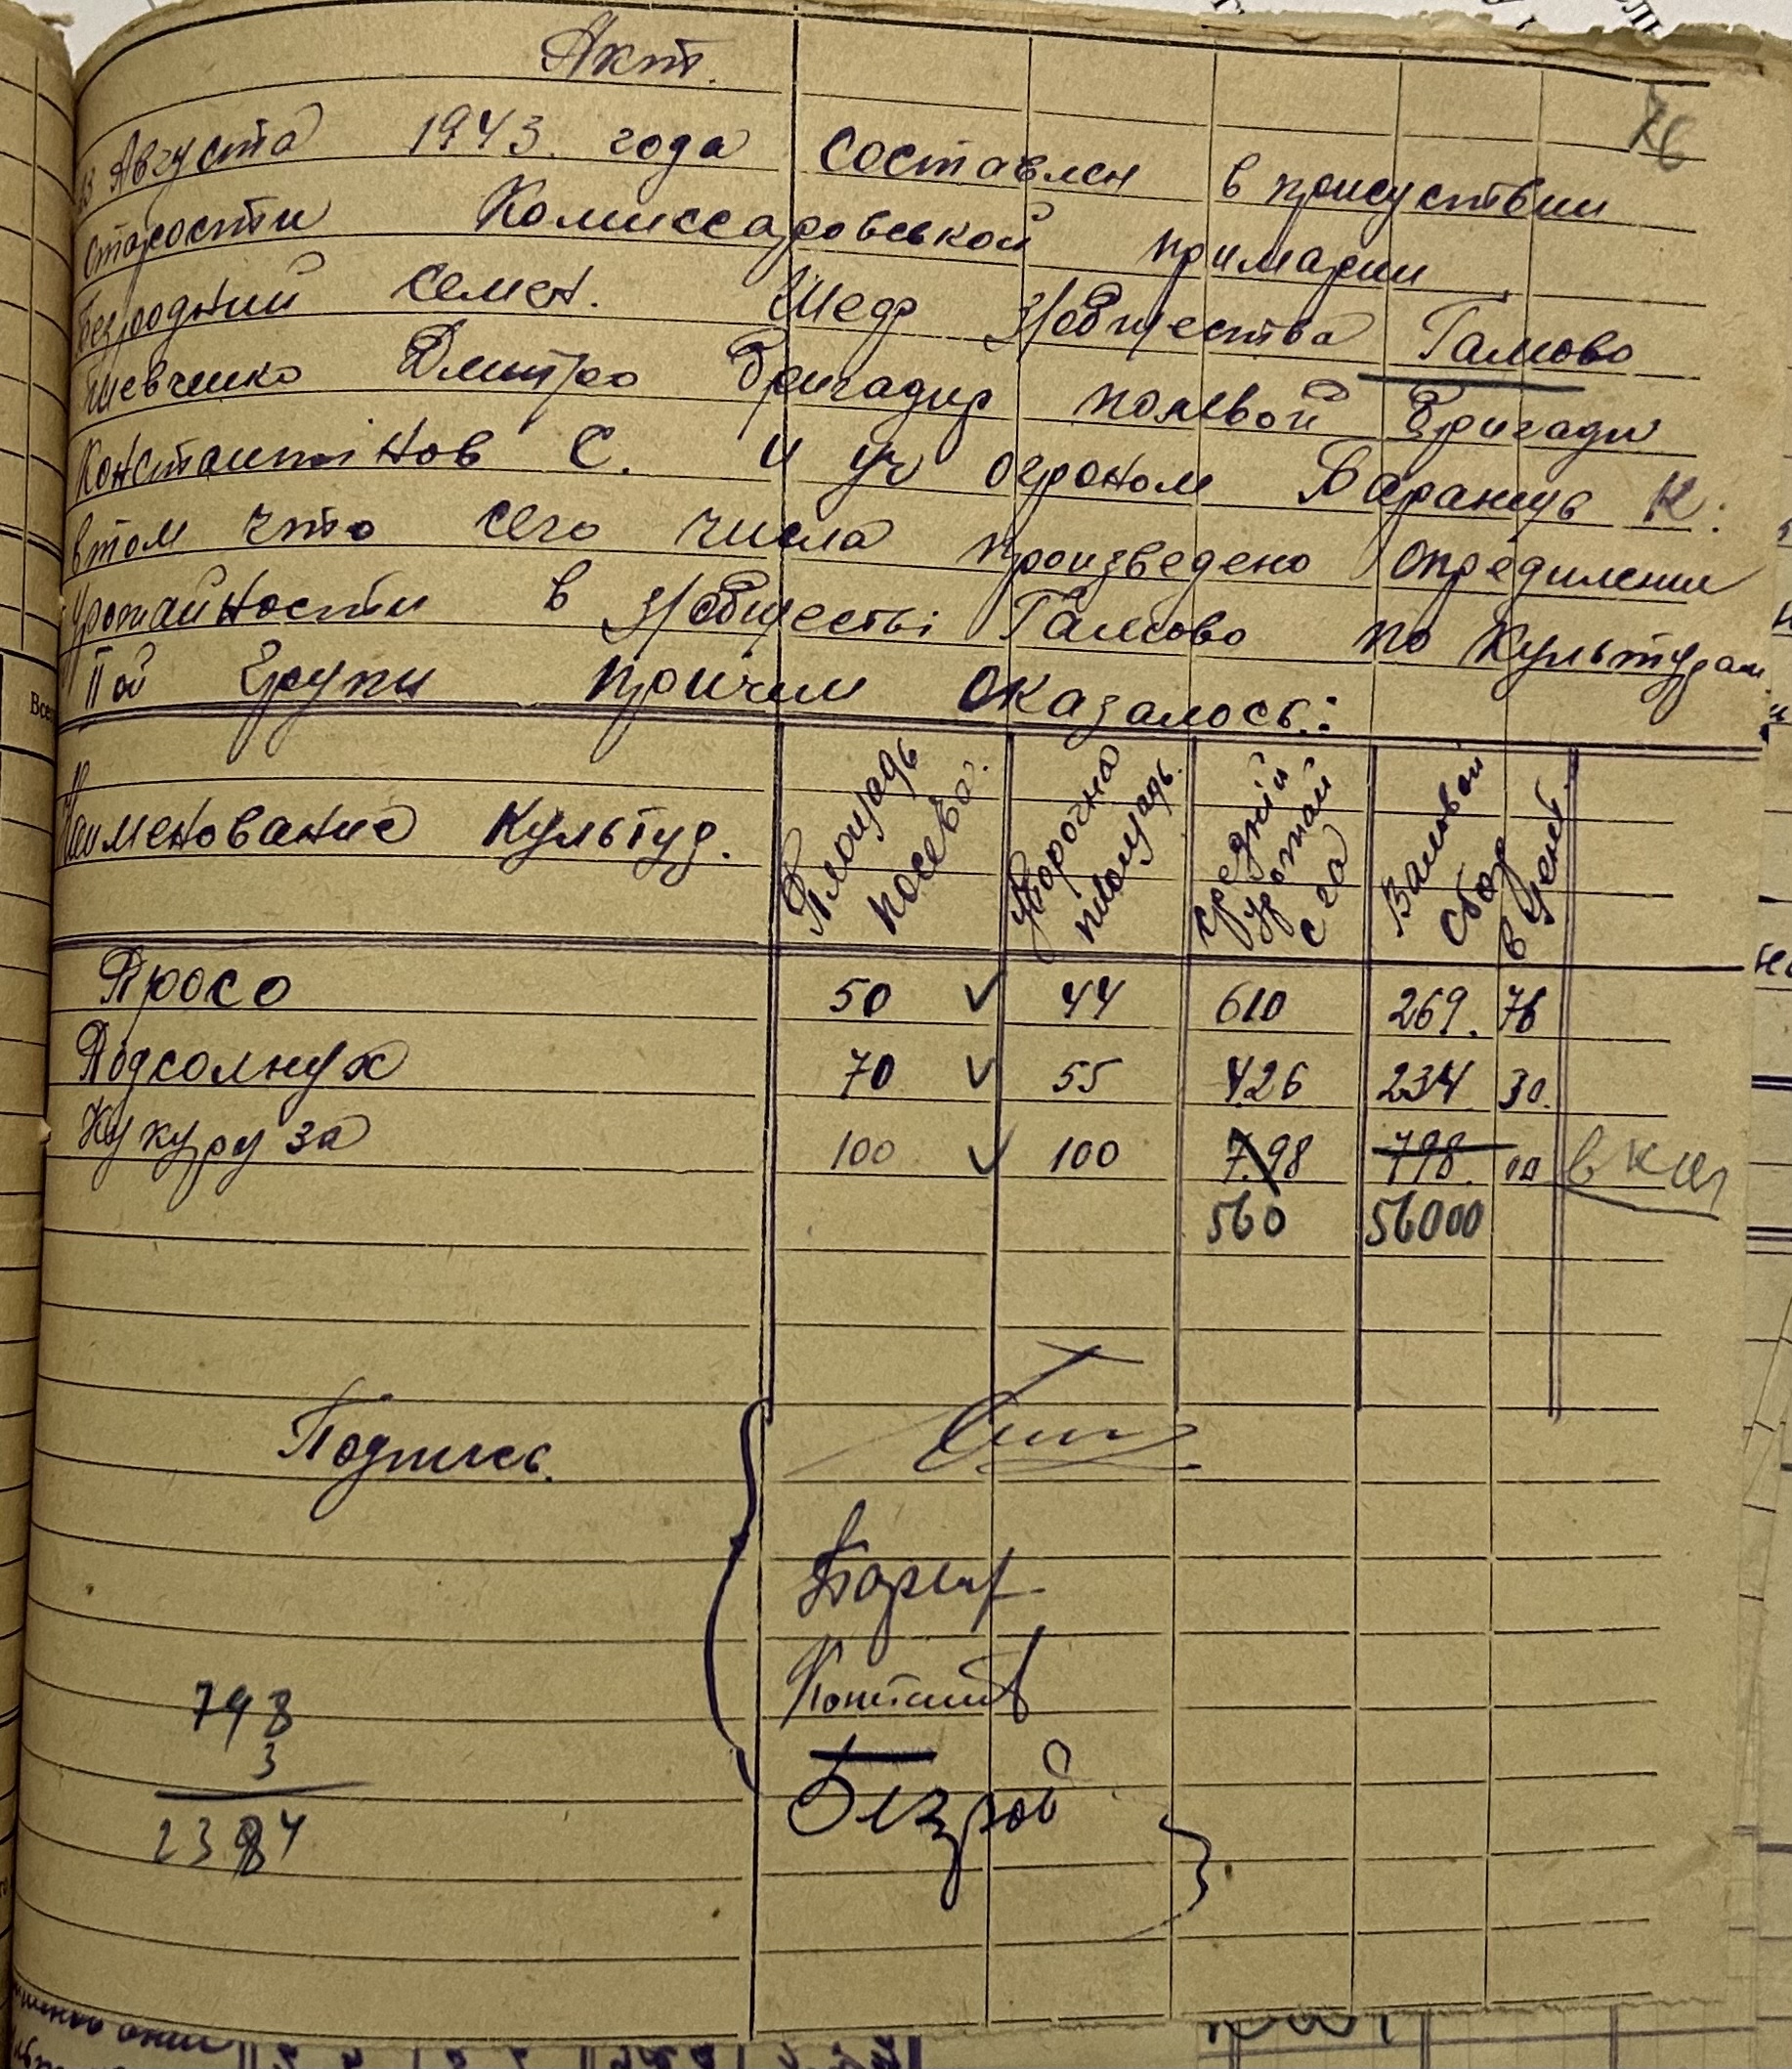 Акт.
76
Августа 1943. года составлен в присуствии
старости Комиссаровськой примарии
Безродний Семен. Шеф з/общества Гамово
Шевченко Дмитро Бригадир полевой Бригади
Константінов С. и уч огроном Баранцув К.
втом что сего числа произведено Определении
Урожайности в з/обществі Гамово по Культурам
ІІой Групи причим оказалось:
Наименование Культур.
Площадь посева.
Уборочна площадь.
средній урожай с га
Валовой сбор в цент.
Просо 50 ✓ 44 610 269. 76
Подсолнух 70 ✓ 55 4.26 234 30.
Кукуруза 100 ✓ 100 7.98 798. 00 в кг
560 56000
Подпись.
Безрой
798
3
2384